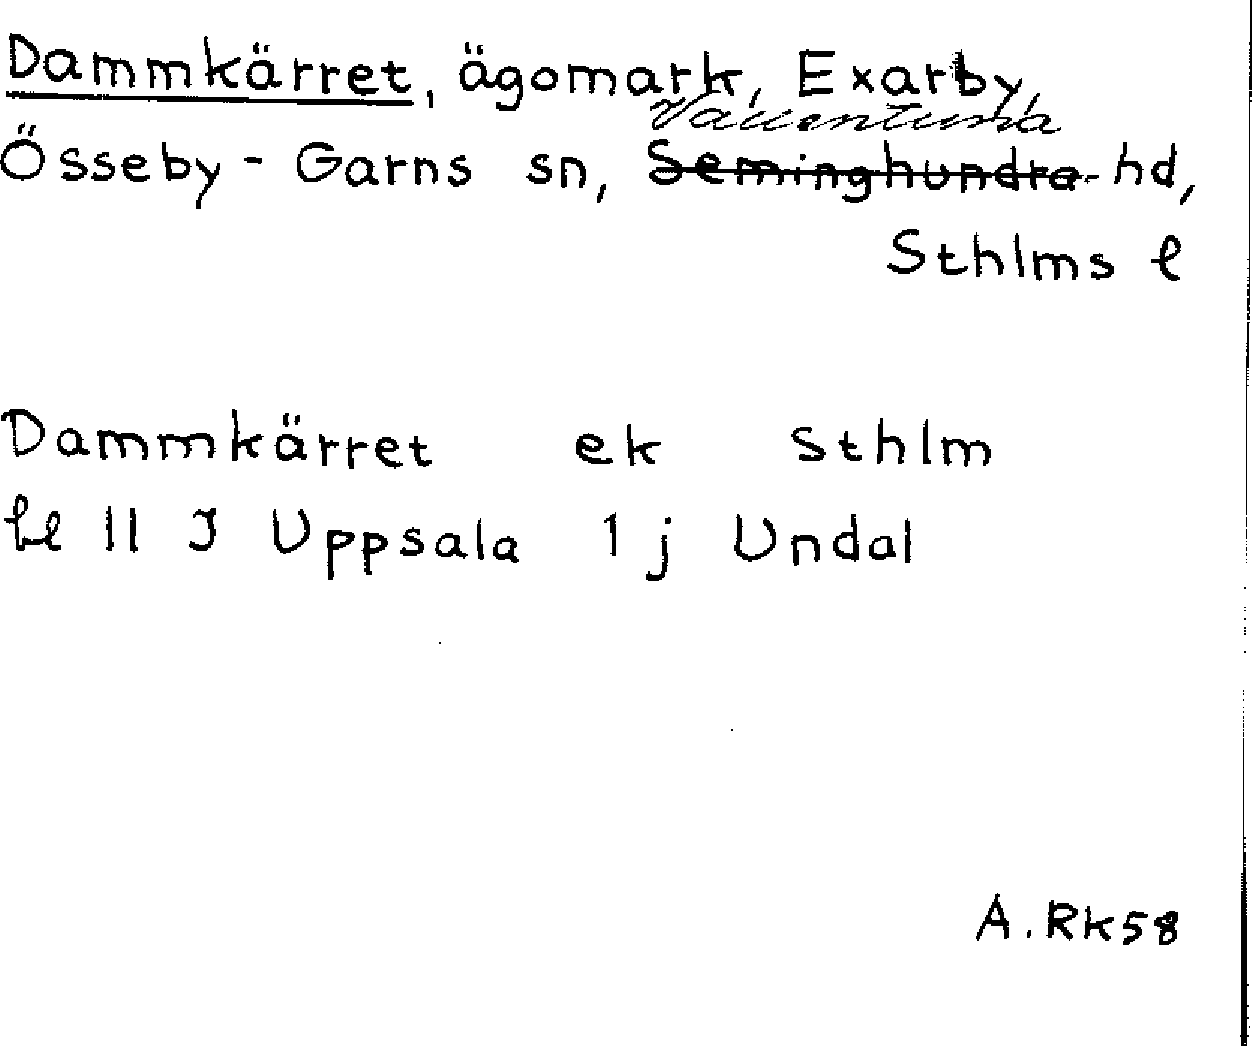 Dammkärret, ägomark, Exarby,
Vallentuna
Össeby-Garns sn, Seminghundra hd,
Sthlms l
Dammkärret ek Sthlm
bl II J Uppsala 1 j Undal
A. Rk 58